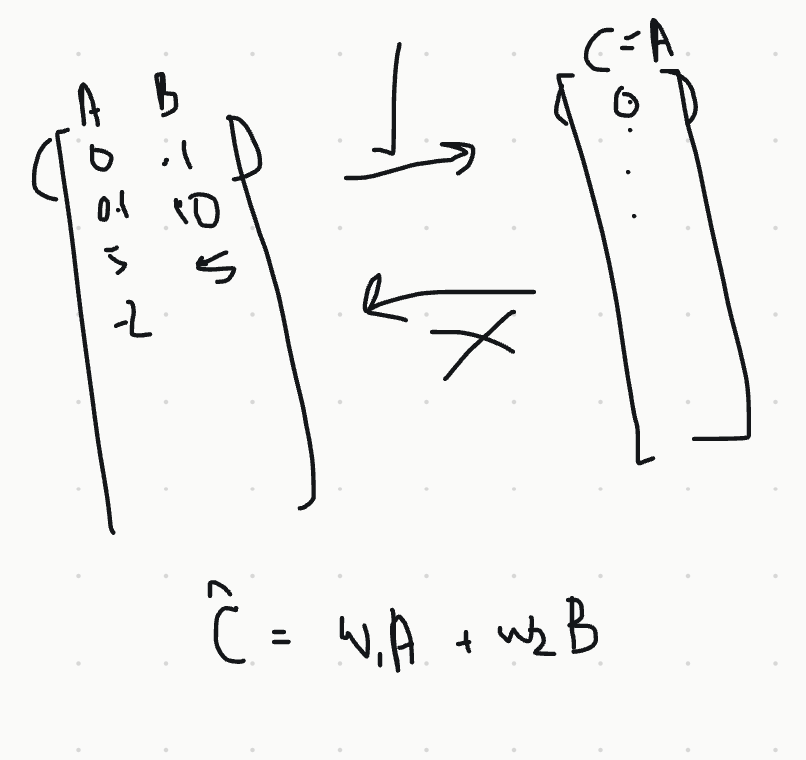 A B
0 .1
0.1 .10
5 5
-2
C = A
0
.
.
.
Ĉ = w₁A + w₂B